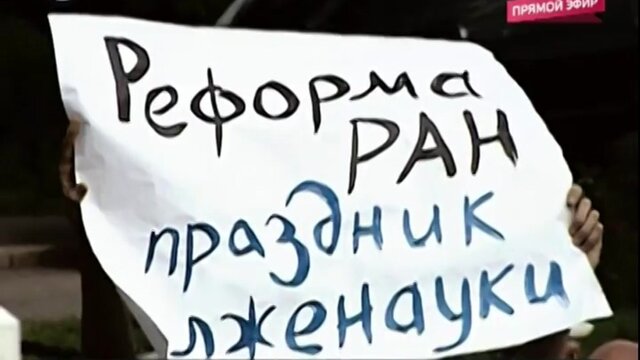 ПРЯМОЙ ЭФИР
Реформа
РАН
праздник
лженауки